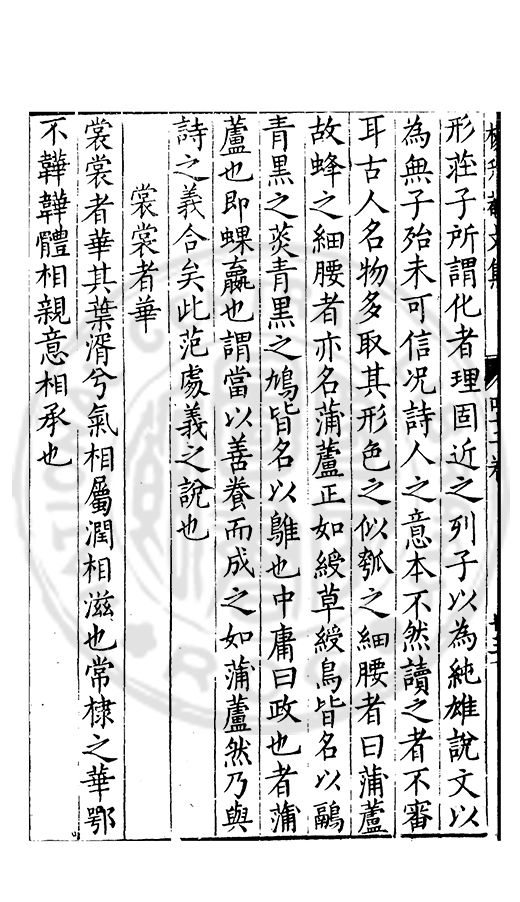 形莊子所謂化者理固近之列子以為純雄說文以
為無子殆未可信况詩人之意本不然讀之者不審
耳古人名物多取其形色之似瓠之細腰者曰蒲蘆
故蜂之細腰者亦名蒲蘆正如綬草綬鳥皆名以鷊
青黑之菼青黑之鳩皆名以鵻也中庸曰政也者蒲
蘆也即蜾蠃也謂當以善養而成之如蒲蘆然乃與
詩之義合矣此范處義之說也
裳裳者華
裳裳者華其葉湑兮氣相屬潤相滋也常棣之華鄂
不韡韡體相親意相承也